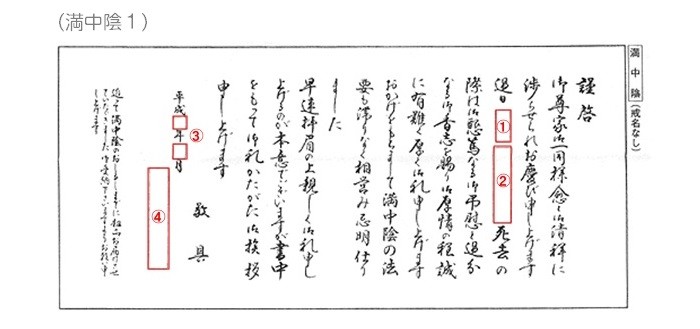 （満中陰１）
満中陰（戒名なし）
謹啓
御尊家御一同様愈々御清祥に
渉らせられお慶び申し上げます
過日 ① ② 死去の
際は御懇篤なる御弔慰と過分
なる御香志を賜り御厚情の程誠
に有難く厚く御礼申し上げます
おかげをもちまして満中陰の法
要も滞りなく相営み忌明仕り
ました
早速拝眉の上親しく御礼申し
上げるのが本意でございますが書中
をもって御礼かたがた御挨拶
申し上げます
敬具
平成 年 月 ③
④
追って 満中陰のおしるしまでに粗品お届けさせ
ていただきました御受納下さいますようお願い申
し上げます